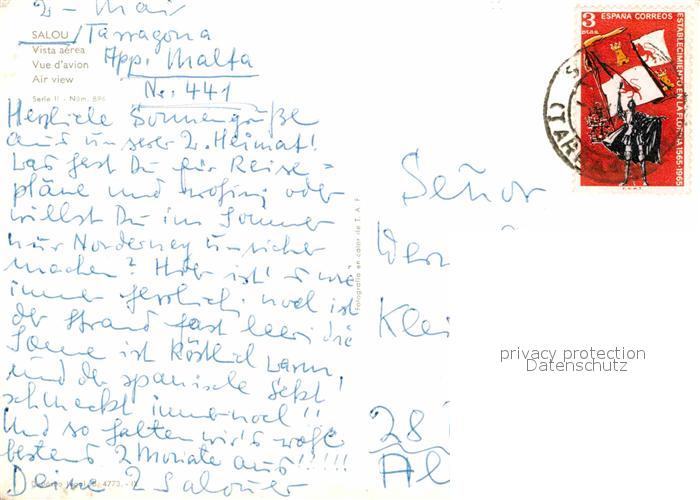 2. Mai
SALOU / Tarragona
Vista aérea
Vue d'avion
Air view
App. Malta
No: 441
Serie II - Núm. 896
Herzliche Sonnengrüße
aus unserer 2. Heimat!
Was hast Du für Reise=
pläne und wohin, oder
willst Du im Sommer
nur Norderney unsicher
machen? Hier ist's wie
immer herrlich, noch ist
der Strand fast leer, die
Sonne ist köstlich warm,
und der spanische Sekt
schmeckt immer noch!!
Und so halten wir's wohl
bestens 2 Monate aus!!!!!
Deine 2 Salouer
Fotografía en color de T. A. F.
3 Ptas
ESPAÑA CORREOS
ESTABLECIMIENTO EN LA FLORIDA 1565 1965
Señor
Wern
Klei
28
Al
privacy protection
Datenschutz